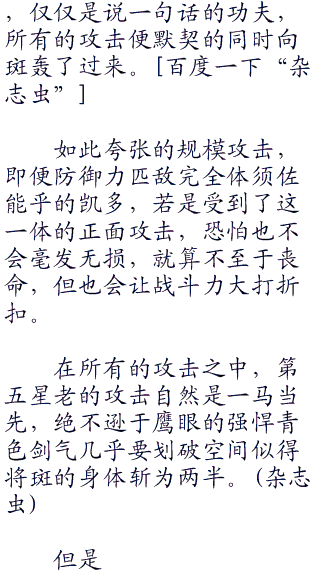 ，仅仅是说一句话的功夫，
所有的攻击便默契的同时向
斑轰了过来。[百度一下“杂
志虫”]
如此夸张的规模攻击，
即便防御力匹敌完全体须佐
能乎的凯多，若是受到了这
一体的正面攻击，恐怕也不
会毫发无损，就算不至于丧
命，但也会让战斗力大打折
扣。
在所有的攻击之中，第
五星老的攻击自然是一马当
先，绝不逊于鹰眼的强悍青
色剑气几乎要划破空间似得
将斑的身体斩为两半。(杂志
虫)
但是